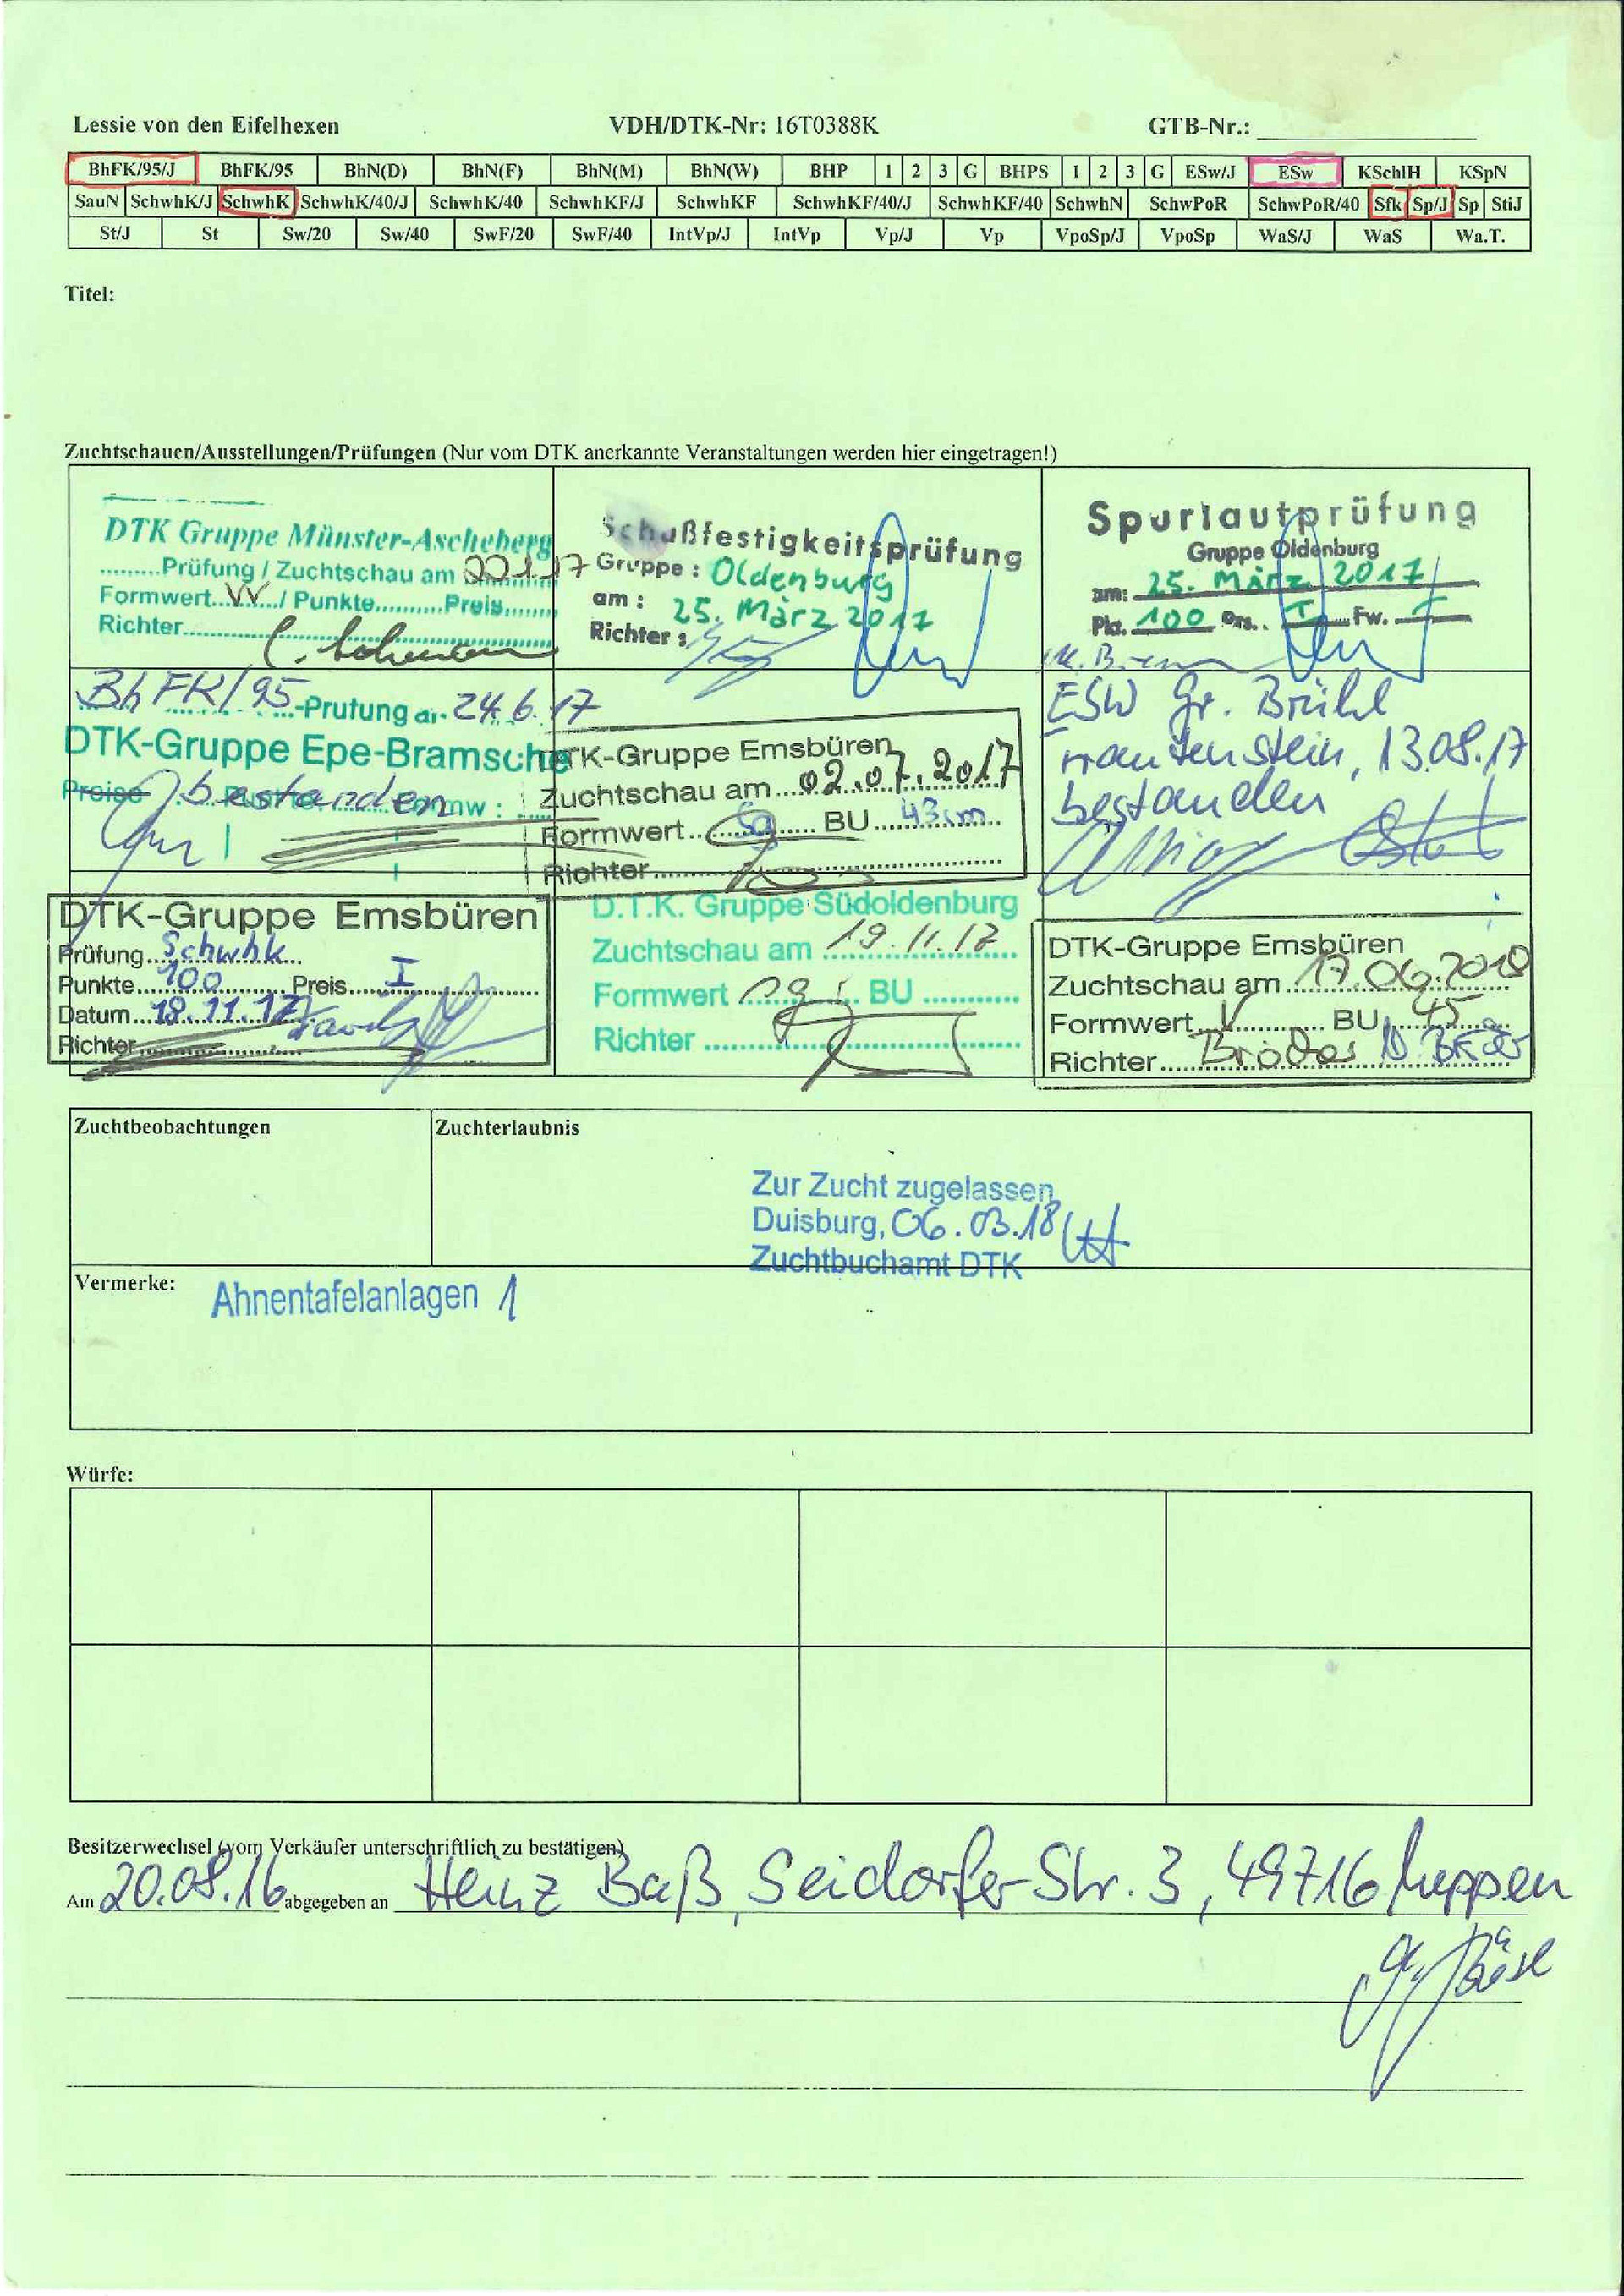 Lessie von den Eifelhexen VDH/DTK-Nr: 16T0388K GTB-Nr.:
BhFK/95/J BhFK/95 BhN(D) BhN(F) BhN(M) BhN(W) BHP 1 2 3 G BHPS 1 2 3 G ESw/J ESw KSchlH KSpN
SauN SchwhK/J SchwhK SchwhK/40/J SchwhK/40 SchwhKF/J SchwhKF SchwhKF/40/J SchwhKF/40 SchwhN SchwPoR SchwPoR/40 Sfk Sp/J Sp StiJ
St/J St Sw/20 Sw/40 SwF/20 SwF/40 IntVp/J IntVp Vp/J Vp VpoSp/J VpoSp WaS/J WaS Wa.T.
Titel:
Zuchtschauen/Ausstellungen/Prüfungen (Nur vom DTK anerkannte Veranstaltungen werden hier eingetragen!)
DTK Gruppe Münster-Ascheberg
Prüfung / Zuchtschau am
Formwert VV / Punkte Preis
Richter
Schußfestigkeitsprüfung
Gruppe: Oldenburg
am: 25. März 2017
Richter:
Spurlautprüfung
Gruppe Oldenburg
am: 25. März 2017
Pkt. 100 Prs. I Fw.
BhFK/95 -Prüfung am 24.6.17
DTK-Gruppe Epe-Bramsche
Preise bestanden
DTK-Gruppe Emsbüren
Zuchtschau am 02.07.2017
Formwert sg BU 43cm
Richter
ESW Gr. Brühl
13.08.17
bestanden
DTK-Gruppe Emsbüren
Prüfung Schwhk
Punkte 100 Preis I
Datum 18.11.17
Richter
D.T.K. Gruppe Südoldenburg
Zuchtschau am 19.11.17
Formwert sg BU
Richter
DTK-Gruppe Emsbüren
Zuchtschau am 17.06.2018
Formwert V BU 45
Richter
Zuchtbeobachtungen Zuchterlaubnis
Zur Zucht zugelassen
Duisburg, 06.03.18
Zuchtbuchamt DTK
Vermerke: Ahnentafelanlagen 1
Würfe:
Besitzerwechsel (vom Verkäufer unterschriftlich zu bestätigen)
Am 20.08.16 abgegeben an Heinz Baß, Seidorfer-Str. 3, 49716 Meppen